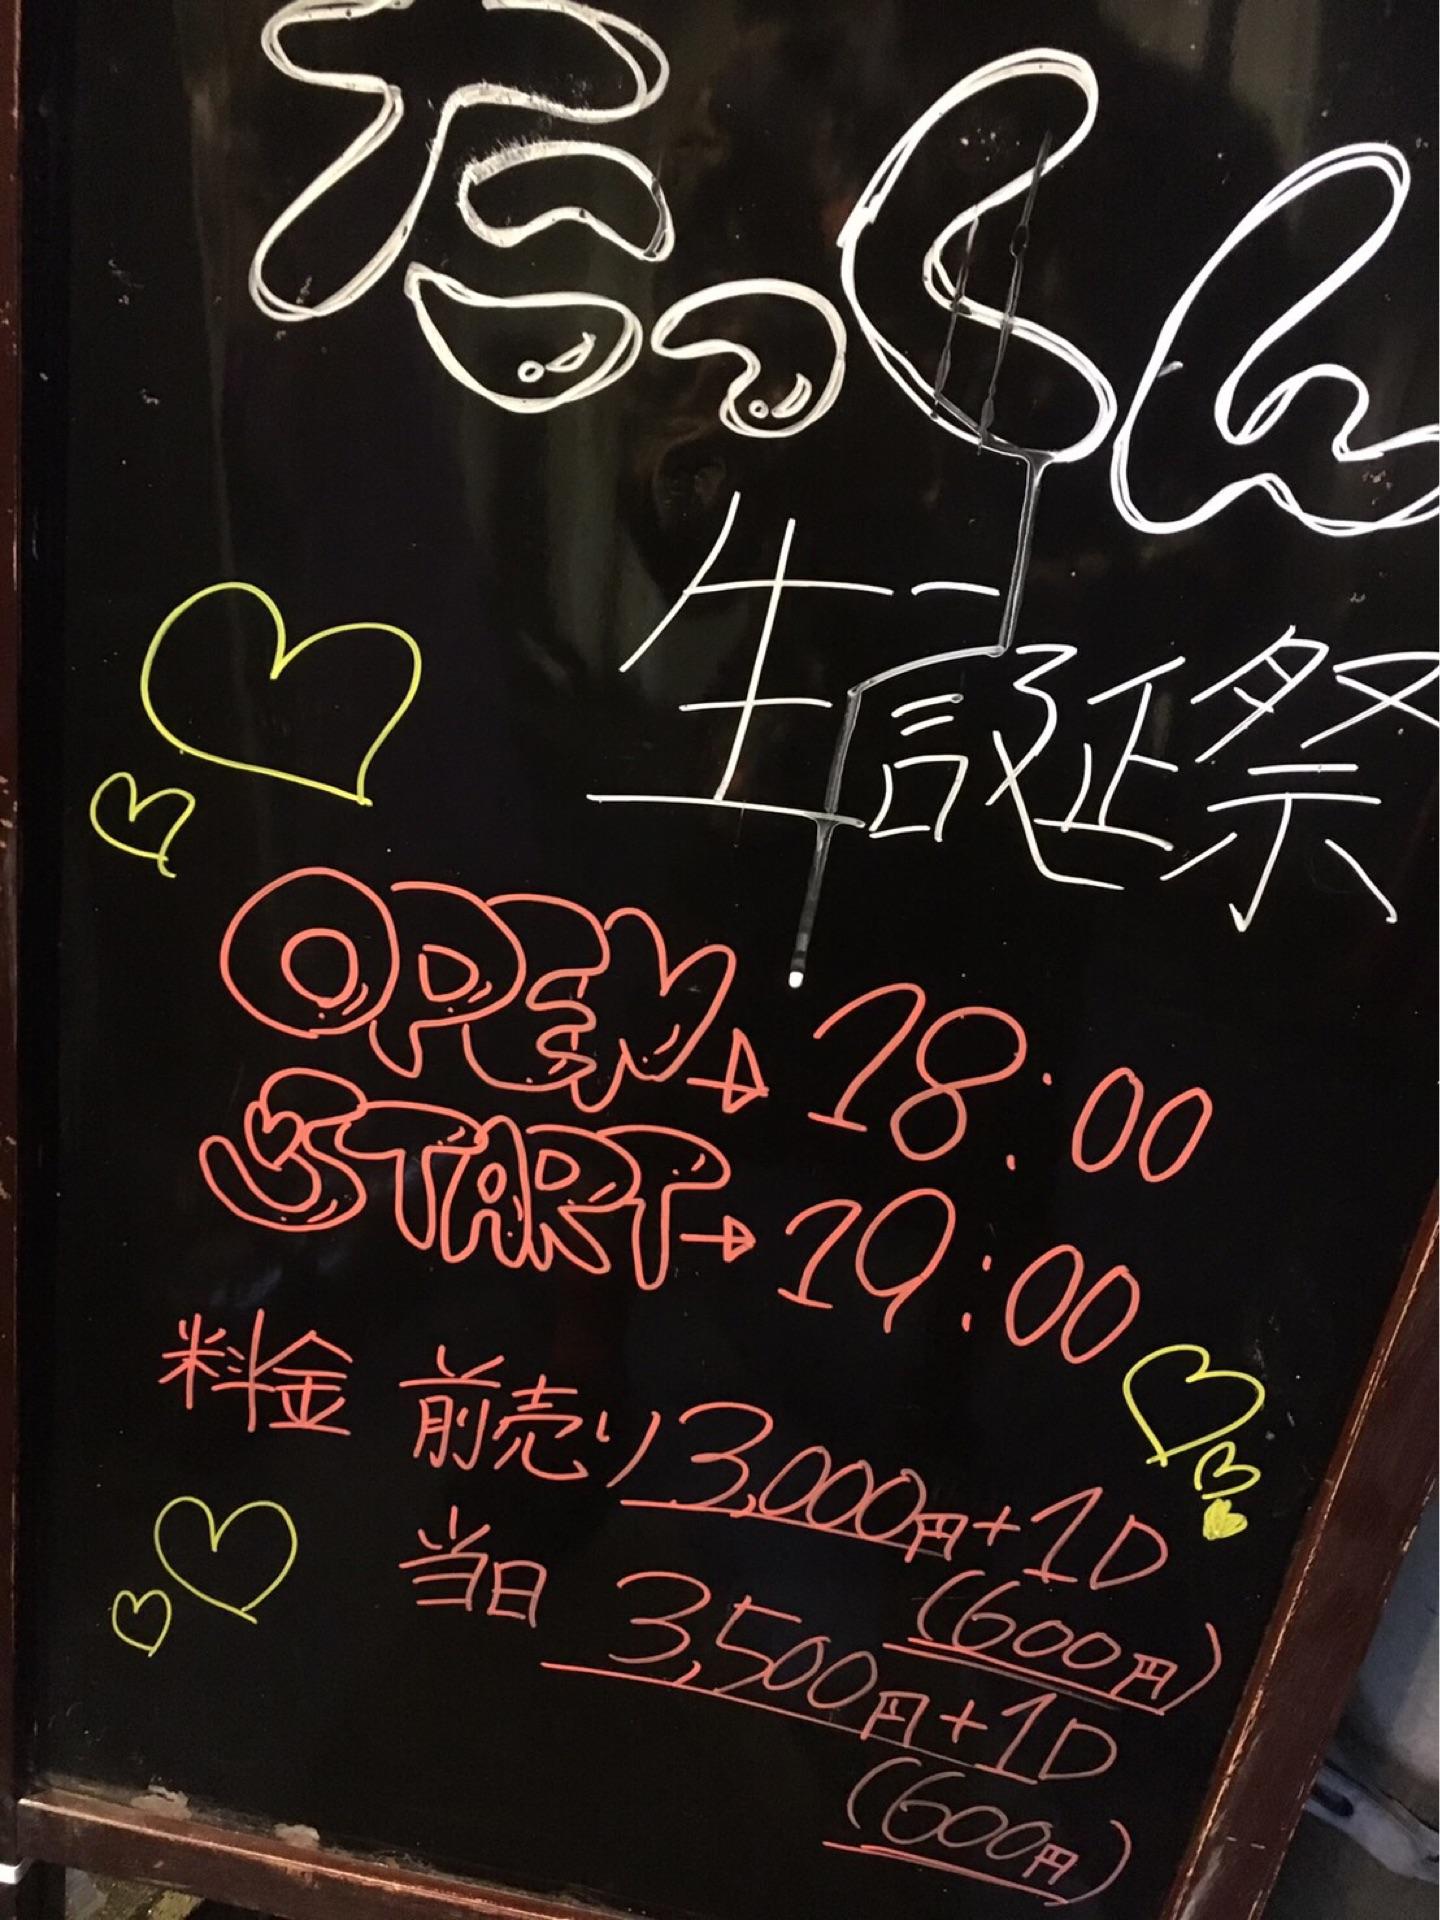 たっくん
生誕祭
OPEN→18:00
START→19:00
料金 前売り 3,000円+1D
(600円)
当日 3,500円+1D
(600円)